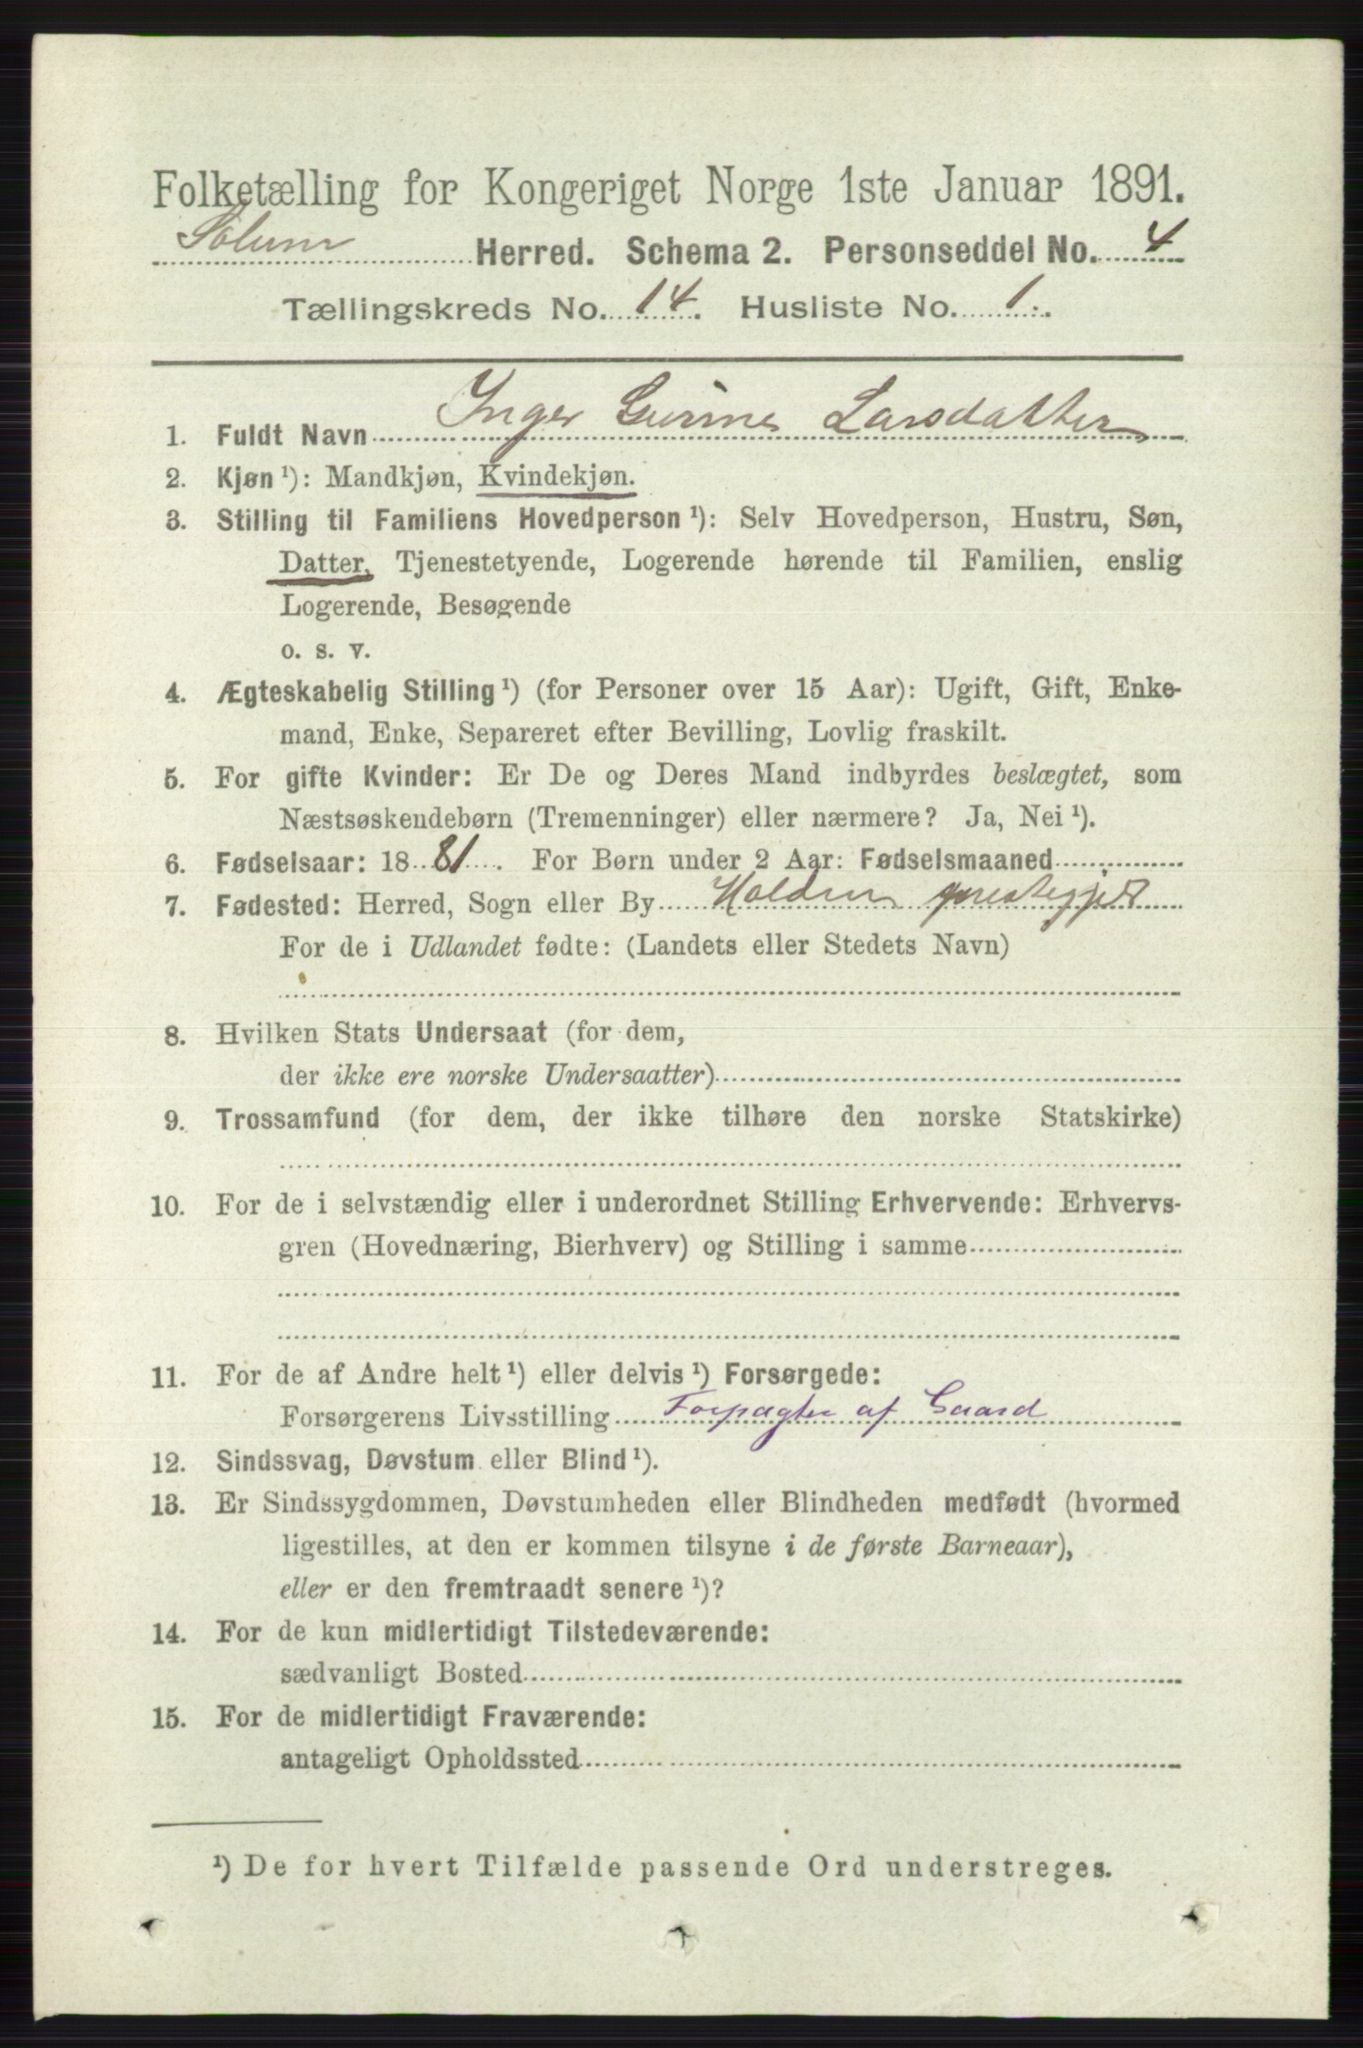 Folketælling for Kongeriget Norge 1ste Januar 1891.
Solum Herred. Schema 2. Personseddel No. 4
Tællingskreds No. 14. Husliste No. 1.
1. Fuldt Navn Inger Gurine Larsdatter
2. Kjøn ¹): Mandkjøn, Kvindekjøn.
3. Stilling til Familiens Hovedperson ¹): Selv Hovedperson, Hustru, Søn,
Datter, Tjenestetyende, Logerende hørende til Familien, enslig
Logerende, Besøgende
o. s. v.
4. Ægteskabelig Stilling ¹) (for Personer over 15 Aar): Ugift, Gift, Enke-
mand, Enke, Separeret efter Bevilling, Lovlig fraskilt.
5. For gifte Kvinder: Er De og Deres Mand indbyrdes beslægtet, som
Næstsøskendebørn (Tremenninger) eller nærmere? Ja, Nei ¹).
6. Fødselsaar: 1881. For Børn under 2 Aar: Fødselsmaaned
7. Fødested: Herred, Sogn eller By Holden prestegjel
For de i Udlandet fødte: (Landets eller Stedets Navn)
8. Hvilken Stats Undersaat (for dem,
der ikke ere norske Undersaatter)
9. Trossamfund (for dem, der ikke tilhøre den norske Statskirke)
10. For de i selvstændig eller i underordnet Stilling Erhvervende: Erhvervs-
gren (Hovednæring, Bierhverv) og Stilling i samme
11. For de af Andre helt ¹) eller delvis ¹) Forsørgede:
Forsørgerens Livsstilling Forpagter af Gaard
12. Sindssvag, Døvstum eller Blind ¹).
13. Er Sindssygdommen, Døvstumheden eller Blindheden medfødt (hvormed
ligestilles, at den er kommen tilsyne i de første Barneaar),
eller er den fremtraadt senere ¹)?
14. For de kun midlertidigt Tilstedeværende:
sædvanligt Bosted
15. For de midlertidigt Fraværende:
antageligt Opholdssted
¹) De for hvert Tilfælde passende Ord understreges.